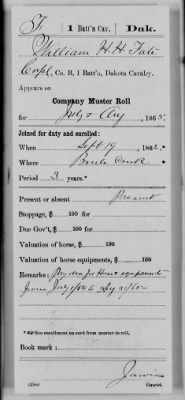 F. 1 Batt'n Cav. Dak.
William H. H. Fate
Corpl, Co. B, 1 Batt'n, Dakota Cavalry.
Appears on
Company Muster Roll
for July & Aug, 1865.
Joined for duty and enrolled:
When Sept 19, 1862.
Where Brule Creek
Period 3 years.*
Present or absent Present
Stoppage, $ 100 for
Due Gov't, $ 100 for
Valuation of horse, $ 100
Valuation of horse equipments, $ 100
Remarks: Pay due for Horse & equipments
from July 1/65 to
* See enrollment on card from muster-in roll.
Book mark:
Copyist.